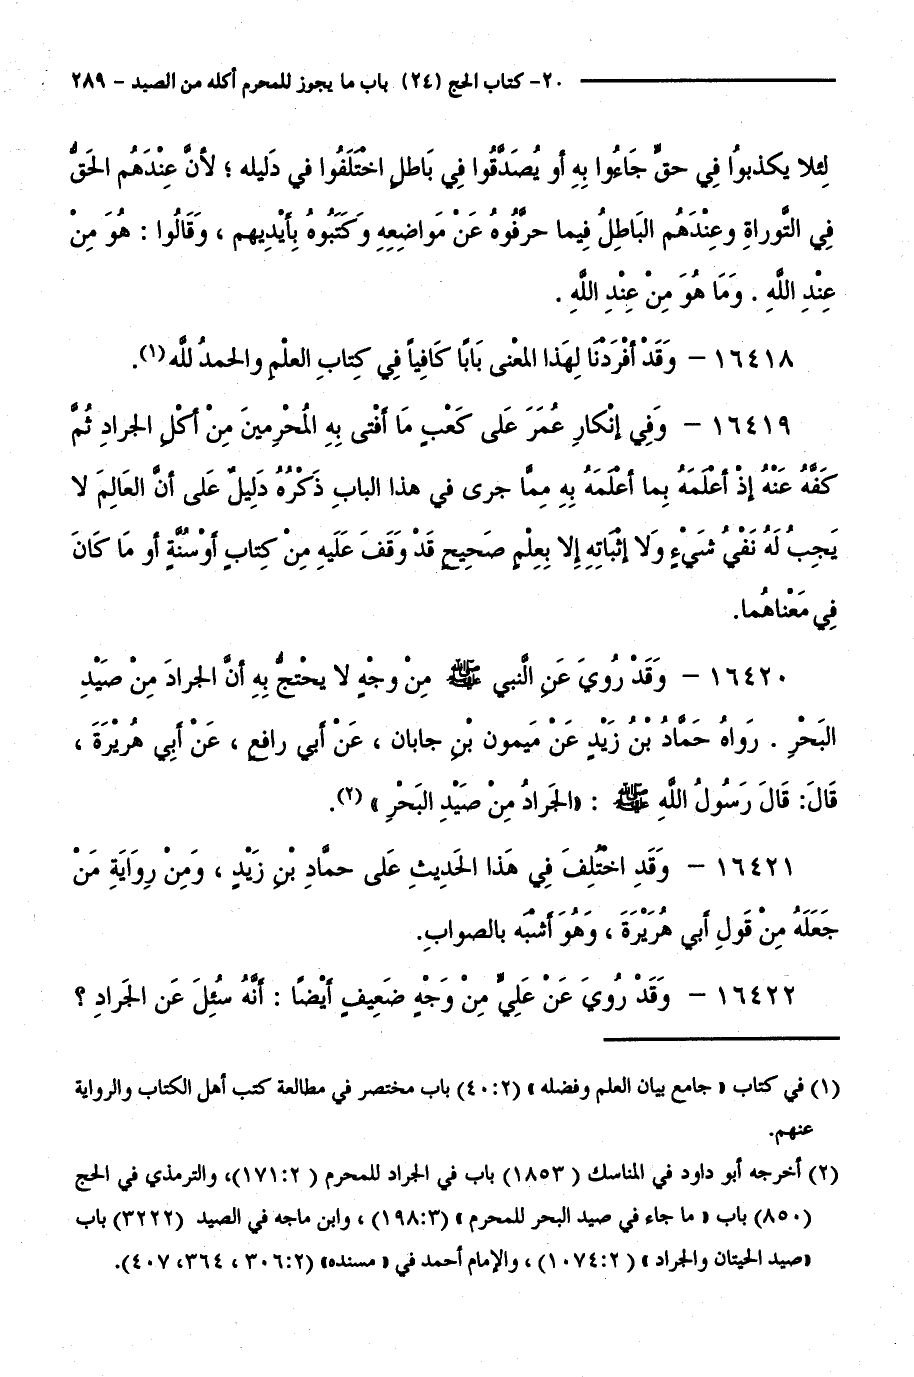 ٢٠- كتاب الحج (٢٤) باب ما يجوز للمحرم أكله من الصيد - ٢٨٩
لِئلا يكذبوُا فِي حقٍّ جَاءُوا بِهِ أو يُصَدَّقُوا فِي بَاطلٍ اختَلَفُوا في دَليله ؛ لأنَّ عِنْدَهُم الحَقُّ
فِي التَّوراةِ وعِنْدَهُم البَاطِلُ فِيما حرَّفُوهُ عَنْ مَواضِعِهِ وكَتَبُوهُ بِأيْدِيهم ، وَقَالُوا : هُوَ مِنْ
عِنْدِ اللَّهِ . وَمَا هُوَ مِنْ عِنْدِ اللَّهِ .
١٦٤١٨ – وَقَدْ أفْرَدْنَا لِهَذا المعْنى بَابًا كَافِياً فِي كِتابِ العلْمِ والحمدُ للَّه(١).
١٦٤١٩ – وَفِي إنْكارِ عُمَرَ عَلى كَعْبٍ مَا أفْتى بِهِ المُحْرِمينَ مِنْ أكْلِ الجرادِ ثُمَّ
كَفَّهُ عَنْهُ إذْ أعْلَمَهُ بِما أعْلَمَهُ بِهِ مِمَّا جرى في هذا البابِ ذَكْرُهُ دَلِيلٌ عَلى أنَّ العَالِمَ لا
يَجِبُ لَهُ نَفْيُ شَيْءٍ وَلَا إثْبَاتِهِ إلا بِعِلْمٍ صَحِيحٍ قَدْ وَقَفَ عَلَيهِ مِنْ كِتابٍ أوْسُنَّةٍ أو مَا كَانَ
فِي مَعْنَاهُما.
١٦٤٢٠ – وَقَدْ رُويَ عَنِ النَّبي ﷺ مِنْ وجْهٍ لا يحْتجُّ بِهِ أنَّ الجرادَ مِنْ صَيَدِ
البَحْرِ . رَواهُ حَمَّادُ بْنُ زَيْدٍ عَنْ مَيمون بْنِ جابان ، عَنْ أبي رافعٍ ، عَنْ أبِي هُريْرَةَ ،
قَالَ: قَالَ رَسُولُ اللَّهِ ﷺ : «الجَرادُ مِنْ صَيْدِ البَحْرِ » (٢).
١٦٤٢١ – وَقَدِ اخْتُلِفَ فِي هَذا الحَديثِ عَلى حمَّادِ بْنِ زَيْدٍ ، وَمِنْ رِوَايَةِ مَنْ
جَعَلَهُ مِنْ قَولِ أبي هُرَيْرَةَ ، وَهُوَ أشْبَه بالصوابِ.
١٦٤٢٢ – وَقَدْ رُويَ عَنْ عَلِيٍّ مِنْ وَجْهٍ ضَعِيفٍ أيْضًا : أنَّهُ سُئِلَ عَن الجَرادِ ؟
(١) في كتاب « جامع بيان العلم وفضله » (٤٠:٢) باب مختصر في مطالعة كتب أهل الكتاب والرواية
عنهم.
(٢) أخرجه أبو داود في المناسك ( ١٨٥٣) باب في الجراد للمحرم ( ١٧١:٢)، والترمذي في الحج
(٨٥٠) باب « ما جاء في صيد البحر للمحرم » (١٩٨:٣) ، وابن ماجه في الصيد (٣٢٢٢) باب
«صيد الحيتان والجراد » ( ١٠٧٤:٢) ، والإمام أحمد في « مسنده» (٣٠٦:٢ ، ٣٦٤، ٤٠٧).